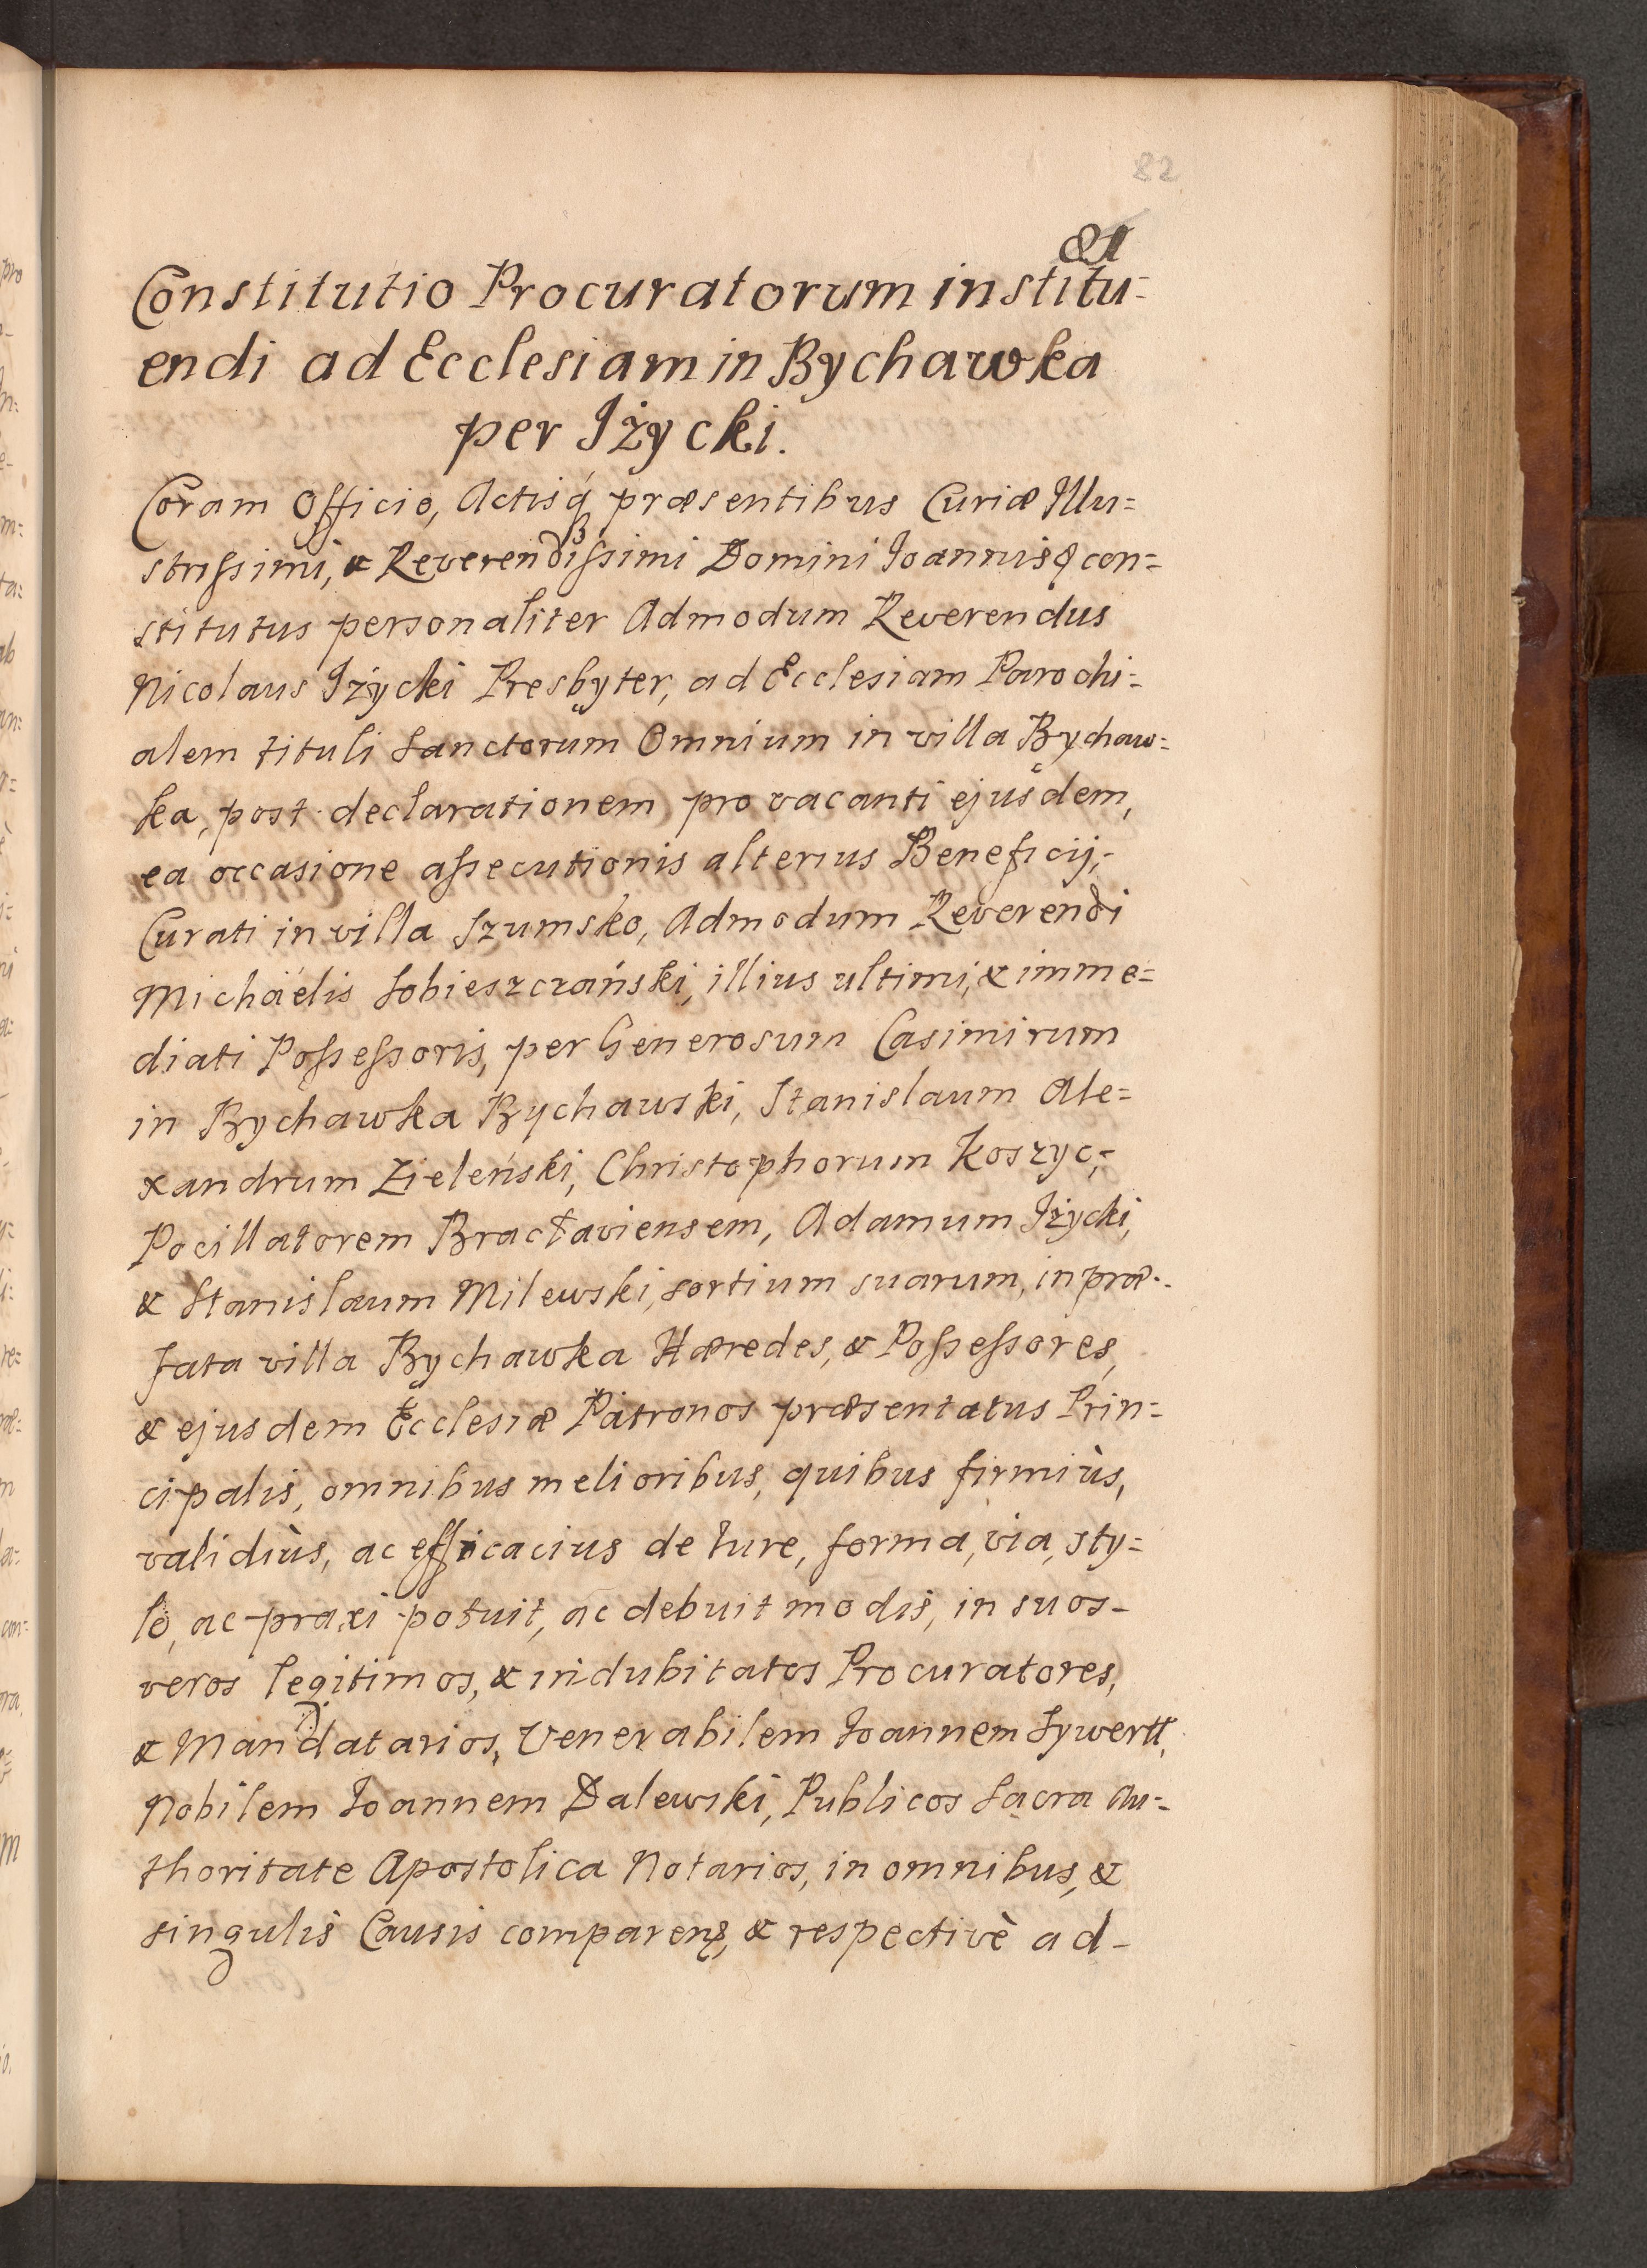 82
81
Constitutio Procuratorum institu=
endi ad Ecclesiam in Bychawka
per Iżycki.
Coram Officio, Actisq́ præsentibus Curiæ Illu=
strißimi, & Reverendißimi Domini Ioannis con=
stitutus personaliter Admodum Reverendus
Nicolaus Iżycki Presbyter, ad Ecclesiam Parochi=
alem tituli Sanctorum Omnium in villa Bychaw=
ka, post declarationem pro vacanti ejusdem,
ea occasione aßecutionis alterius Beneficij,-
Curati in villa Szumsko, Admodum Reverendi
Michaëlis Sobieszczański, illius ultimi, & imme=
diati Poßeßoris, per Generosum Casimirum
in Bychawka Bychawski, Stanislaum Ale=
xandrum Zieleński, Christophorum Koszyc,-
Pocillatorem Bracłaviensem, Adamum Iżycki,
& Stanislaum Milewski, sortium suarum, in præ-
fata villa Bychawka Hæredes, & Poßeßores,
& ejusdem Ecclesiæ Patronos præsentatus Prin=
cipalis, omnibus melioribus, quibus firmiùs,
validiùs, ac efficacius de Iure, forma, via, sty=
lo, ac praxi potuit, ac debuit modis, in suos-
veros legitimos, & indubitatos Procuratores,
& Mandatarios, Venerabilem Ioannem Sywertt,
Nobilem Ioannem Dalewski, Publicos Sacra Au=
thoritate Apostolica Notarios, in omnibus, &
singulis Causis & respectivè ad-